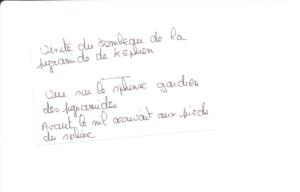 Visite du tombeau de la
pyramide de Kephren
Vue sur le sphinx gardien
des pyramides
Avant le nil arrivait aux pieds
du sphinx